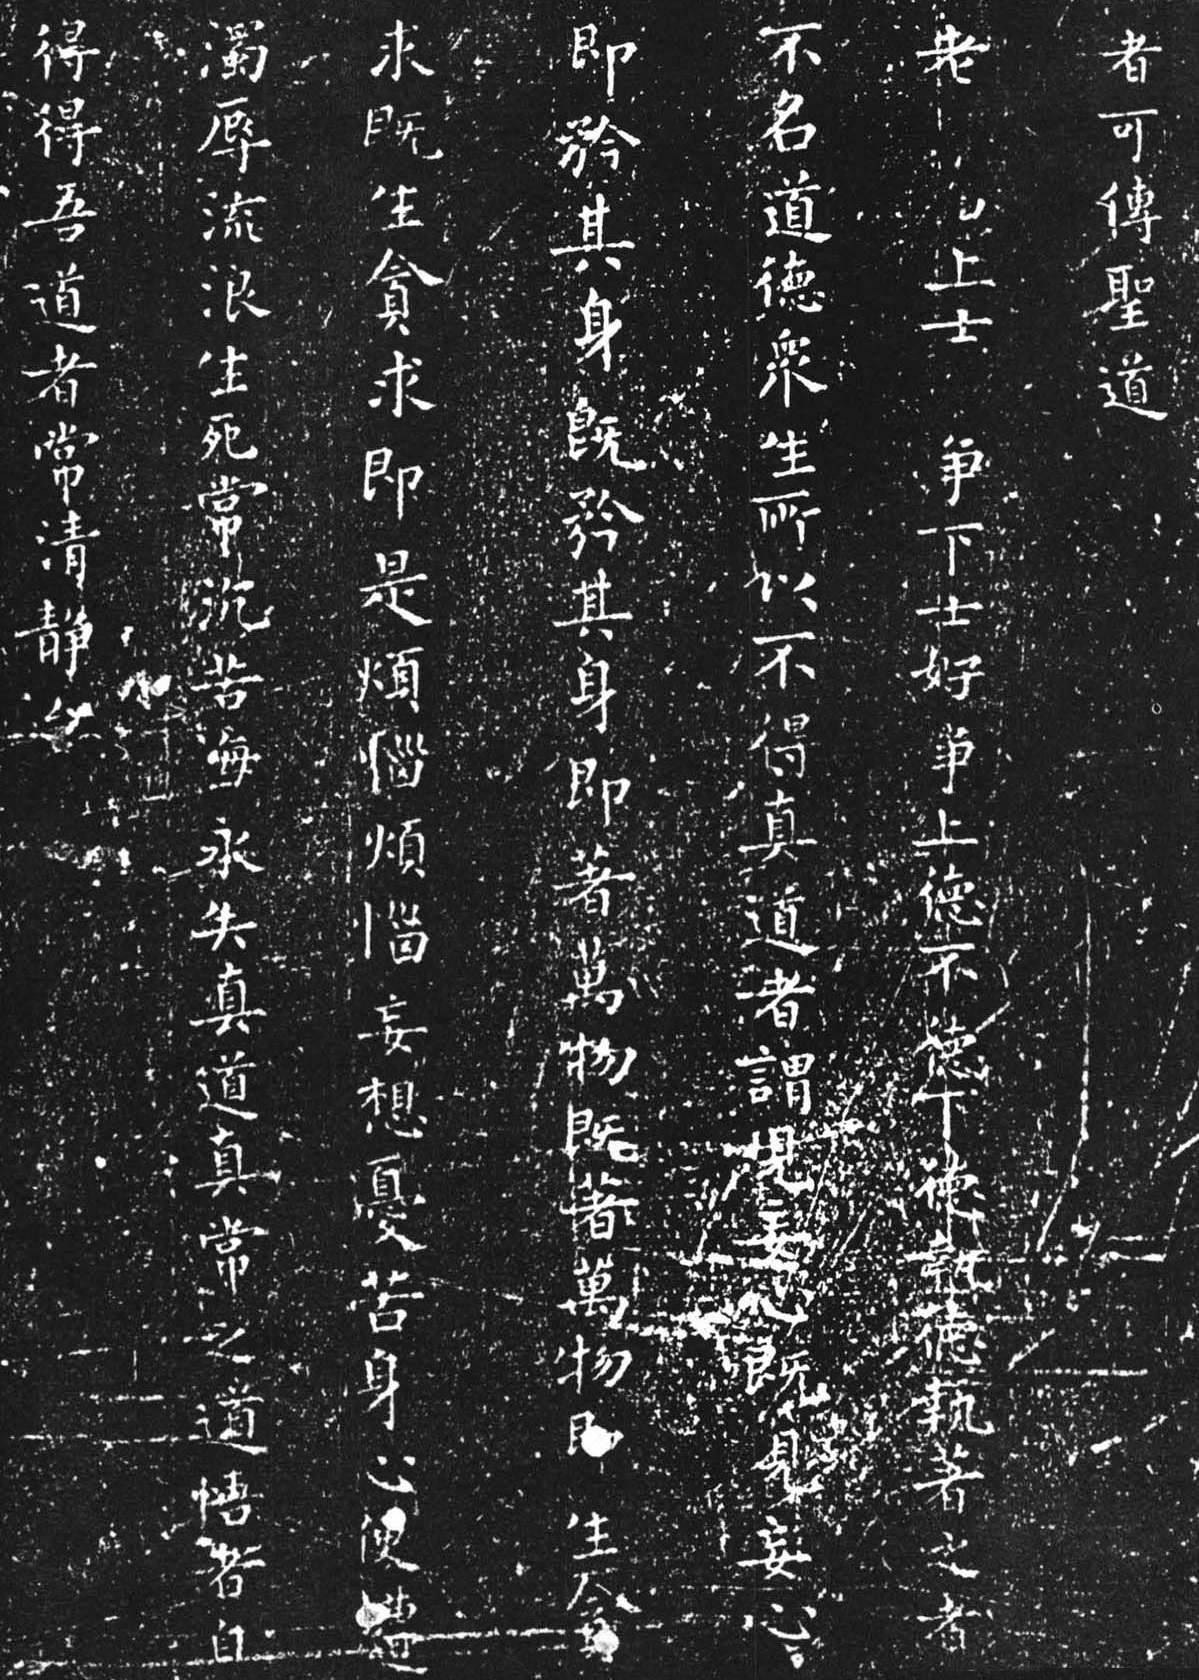 者可傳聖道
老上士爭下士好爭上德不德下德執德執著之者
不名道德衆生所以不得真道者謂妄心既妄心
即矜其身既矜其身即著萬物既著萬物即生貪
求既生貪求即是煩惱煩惱妄想憂苦身心便遭
濁辱流浪生死常沉苦海永失真道真常之道悟者自
得得吾道者常清靜矣